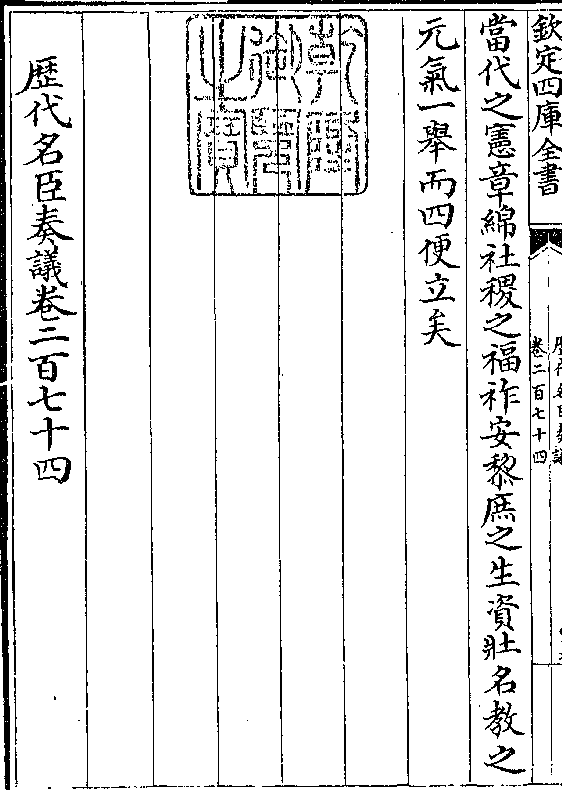 欽定四庫全書
卷二百七十四
當代之憲章綿社稷之福祚安黎庶之生資壯名教之
元氣一舉而四便立矣
乾隆
御覽
之寶
歷代名臣奏議卷二百七十四